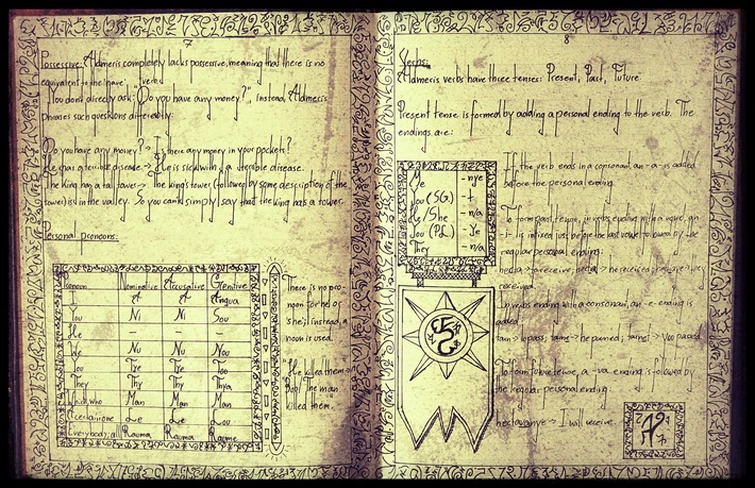 7
Possessive: Aldmeris completely lacks possessive, meaning that there is no
equivalent to the "have" verb.
You don't directly ask "Do you have any money?", instead, Aldmeris
phrases such questions differently.
Do you have any money? -> Is there any money in your pockets?
He has a terrible disease -> He is sick with a terrible disease.
The king has a tall tower -> The king's tower (followed by some description of the
tower) is in the valley. So you can't simply say that the king has a tower.
Personal pronouns:
Pronoun Nominative Accusative Genitive
I A A Angua
You Ni Ni Sou
He - - -
We Nu Nu Nou
You Tye Tye Too
They Thy Thy Thya
Which, who Man Man Man
Le Le Lou
Everybody, all Rauma Rauma
There is no pro-
noun for he or
she; instead, a
noun is used.
"He killed them ->
Bob/The man
killed them.
8
Verbs:
Aldmeris verbs have three tenses: Present, Past, Future
Present tense is formed by adding a personal ending to the verb. The
endings are:
Me -nye
You (SG.) -t
He/She -n/a
You (PL.) -ye
They -n/a
If the verb ends in a consonant, an -a- is added
before the personal ending.
To form past tense, in verbs ending with a vowel, an
-i- is infixed just before the last vowel followed by the
regular personal ending:
-> to receive; -> he receives; -> they
received.
In verbs ending with a consonant, an -e- ending is
added
-> to pass; -> he passed; -> you passed
To form future tense, a -va- ending is followed by
the regular personal ending.
hectavanye -> I will receive.